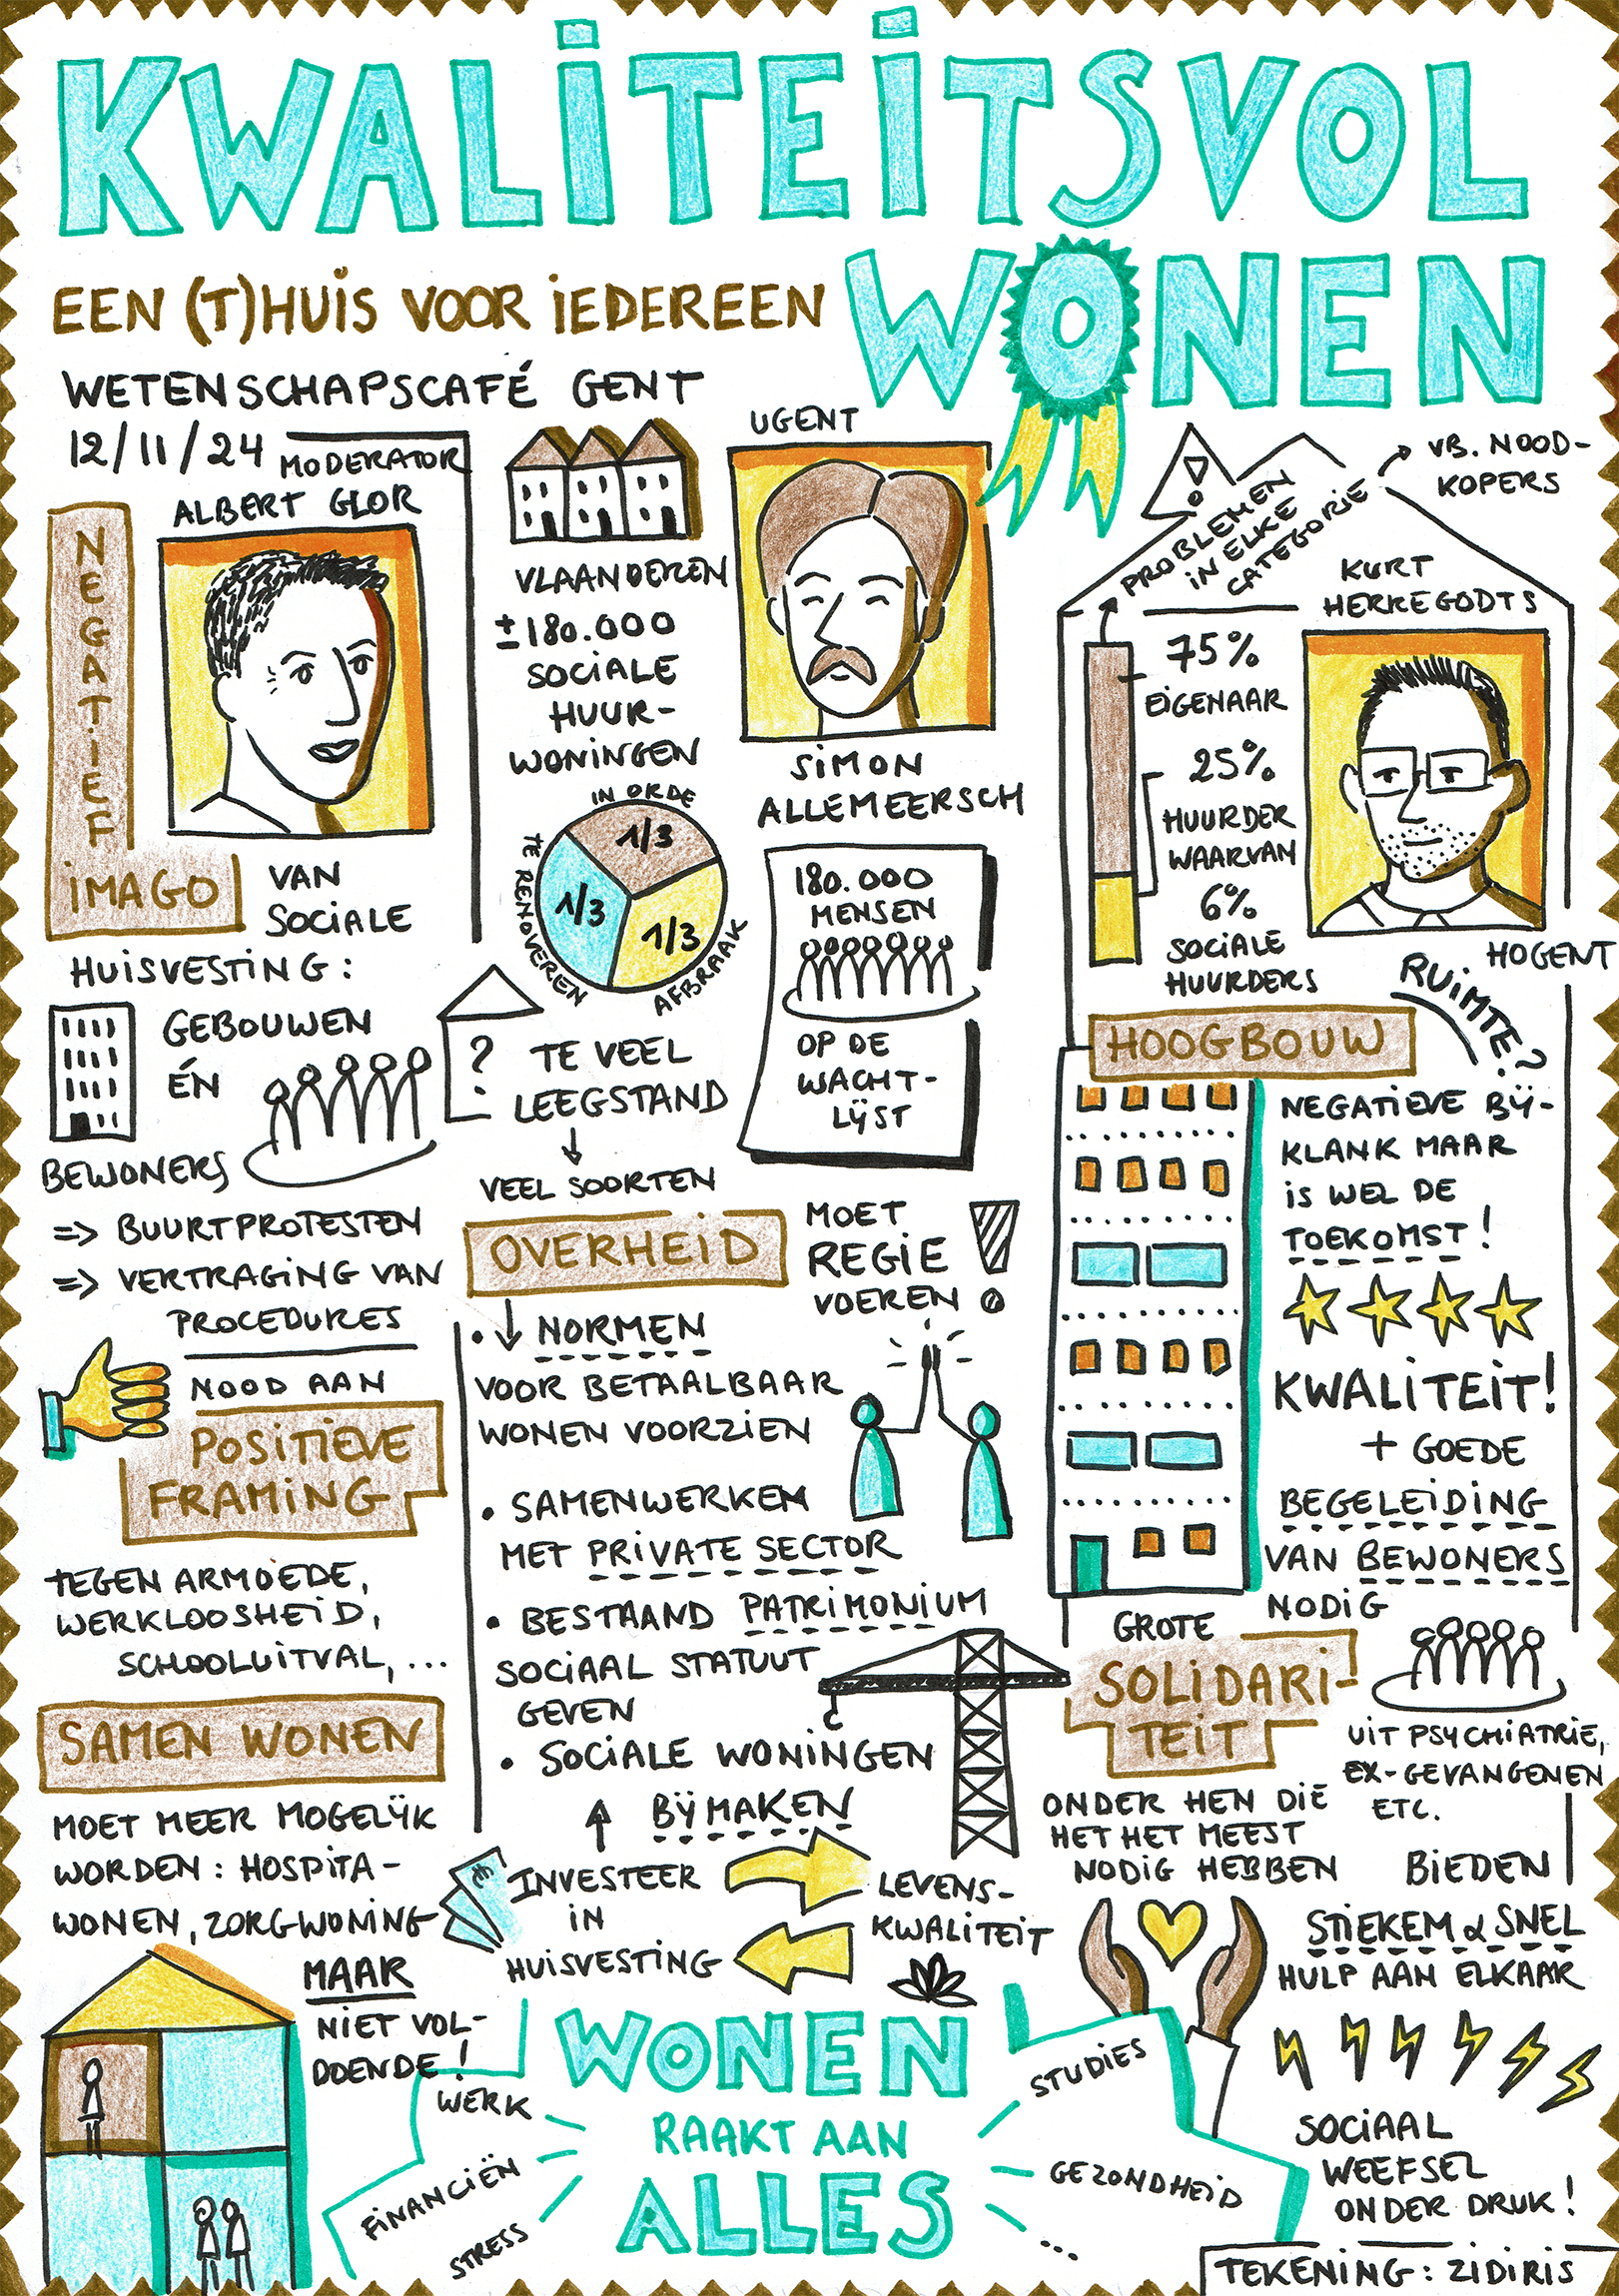 KWALITEITSVOL
WONEN
EEN (T)HUIS VOOR IEDEREEN
WETENSCHAPSCAFÉ GENT
12/11/24
MODERATOR
ALBERT GLOR
NEGATIEF
IMAGO
VAN
SOCIALE
HUISVESTING:
GEBOUWEN
ÉN
BEWONERS
=> BUURTPROTESTEN
=> VERTRAGING VAN
PROCEDURES
NOOD AAN
POSITIEVE
FRAMING
TEGEN ARMOEDE,
WERKLOOSHEID,
SCHOOLUITVAL,...
SAMEN WONEN
MOET MEER MOGELIJK
WORDEN: HOSPITA-
WONEN, ZORGWONING
MAAR
NIET VOL-
DOENDE!
VLAANDEREN
±180.000
SOCIALE
HUUR-
WONINGEN
IN ORDE
1/3
TE RENOVEREN
1/3
AFBRAAK
1/3
?
TE VEEL
LEEGSTAND
VEEL SOORTEN
UGENT
SIMON
ALLEMEERSCH
180.000
MENSEN
OP DE
WACHT-
LIJST
OVERHEID
MOET
REGIE
VOEREN
• NORMEN
VOOR BETAALBAAR
WONEN VOORZIEN
• SAMENWERKEN
MET PRIVATE SECTOR
• BESTAAND PATRIMONIUM
SOCIAAL STATUUT
GEVEN
• SOCIALE WONINGEN
BIJMAKEN
€
INVESTEER
IN
HUISVESTING
LEVENS-
KWALITEIT
!
PROBLEMEN
IN ELKE
CATEGORIE
VB. NOOD-
KOPERS
KURT
HERREGODTS
75%
EIGENAAR
25%
HUURDER
WAARVAN
6%
SOCIALE
HUURDERS
HOGENT
RUIMTE?
HOOGBOUW
NEGATIEVE BIJ-
KLANK MAAR
IS WEL DE
TOEKOMST!
KWALITEIT!
+ GOEDE
BEGELEIDING
VAN BEWONERS
NODIG
GROTE
SOLIDARI-
TEIT
UIT PSYCHIATRIE,
EX-GEVANGENEN
ETC.
ONDER HEN DIE
HET HET MEEST
NODIG HEBBEN
BIEDEN
STIEKEM & SNEL
HULP AAN ELKAAR
SOCIAAL
WEEFSEL
ONDER DRUK!
WONEN
RAAKT AAN
ALLES
WERK
FINANCIËN
STRESS
STUDIES
GEZONDHEID
...
TEKENING: ZIDIRIS